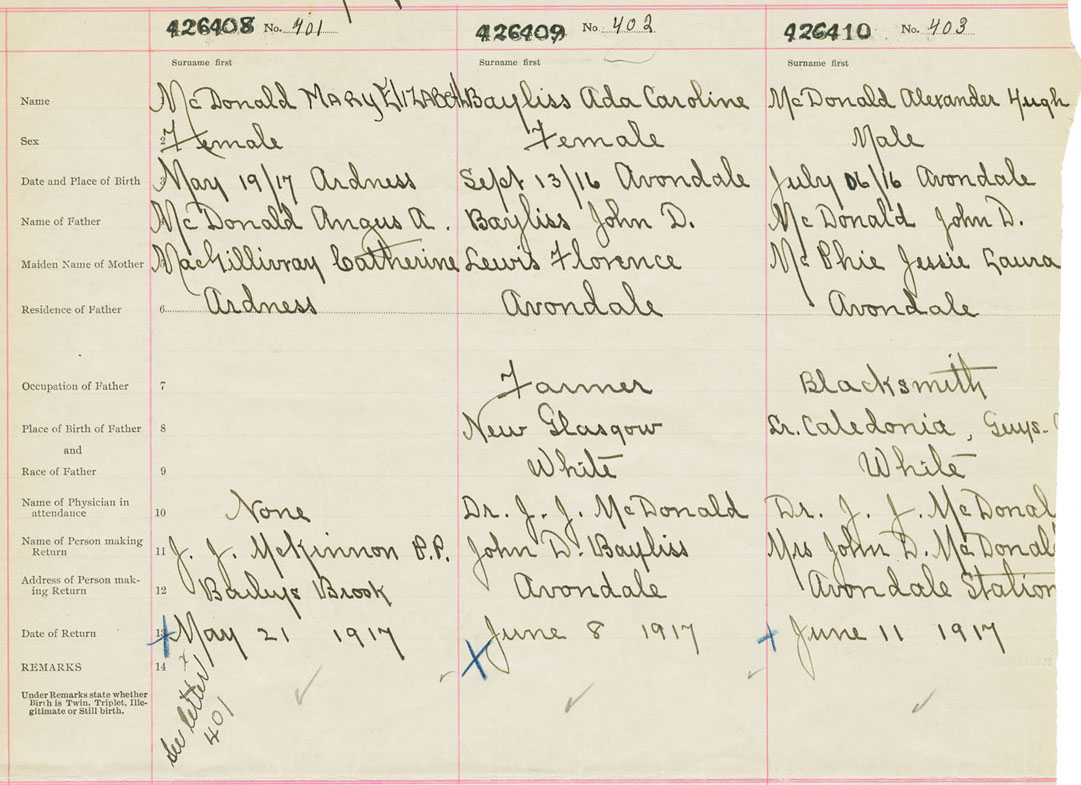 426408 No. 401 426409 No. 402 426410 No. 403
Surname first Surname first Surname first
Name McDonald MARY ELIZABETH Bayliss Ada Caroline McDonald Alexander Hugh
Sex 2 Female Female Male
Date and Place of Birth 3 May 19/17 Ardness Sept 13/16 Avondale July 06/16 Avondale
Name of Father McDonald Angus A. Bayliss John D. McDonald John D.
Maiden Name of Mother MacKillivray Catherine Lewis Florence McPhie Jessie Laura
Residence of Father 6 Ardness Avondale Avondale
Occupation of Father 7 Farmer Blacksmith
Place of Birth of Father 8 New Glasgow Lr. Caledonia, Guys.
and
Race of Father 9 White White
Name of Physician in
attendance 10 None Dr. J. J. McDonald Dr. J. J. McDonal
Name of Person making
Return 11 J. J. McKinnon P.P. John D. Bayliss Mrs John D. McDonal
Address of Person mak-
ing Return 12 Bailys Brook Avondale Avondale Station
Date of Return 13 May 21 1917 June 8 1917 June 11 1917
REMARKS 14
Under Remarks state whether
Birth is Twin, Triplet, Ille-
gitimate or Still birth.
See letter
401